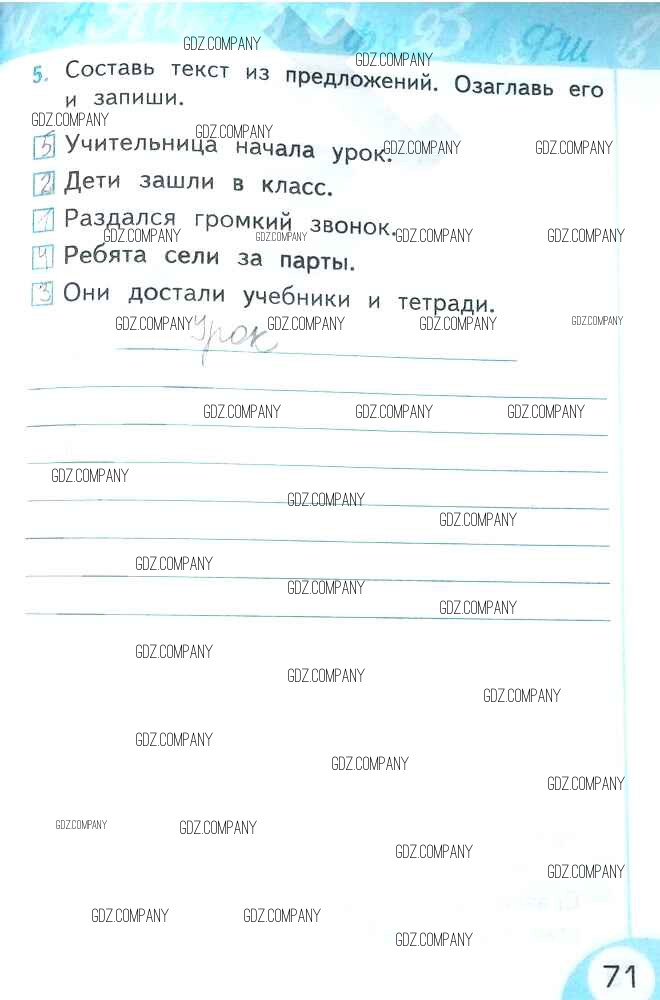 GDZ.COMPANY
GDZ.COMPANY
5. Составь текст из предложений. Озаглавь его
и запиши.
GDZ.COMPANY GDZ.COMPANY GDZ.COMPANY GDZ.COMPANY
5 Учительница начала урок.
2 Дети зашли в класс.
1 Раздался громкий звонок.
GDZ.COMPANY GDZ.COMPANY GDZ.COMPANY GDZ.COMPANY
4 Ребята сели за парты.
3 Они достали учебники и тетради.
GDZ.COMPANY GDZ.COMPANY GDZ.COMPANY GDZ.COMPANY
Урок
GDZ.COMPANY GDZ.COMPANY GDZ.COMPANY
GDZ.COMPANY
GDZ.COMPANY
GDZ.COMPANY
GDZ.COMPANY
GDZ.COMPANY
GDZ.COMPANY
GDZ.COMPANY
GDZ.COMPANY
GDZ.COMPANY
GDZ.COMPANY
GDZ.COMPANY
GDZ.COMPANY
GDZ.COMPANY GDZ.COMPANY
GDZ.COMPANY
GDZ.COMPANY
GDZ.COMPANY GDZ.COMPANY
GDZ.COMPANY
71